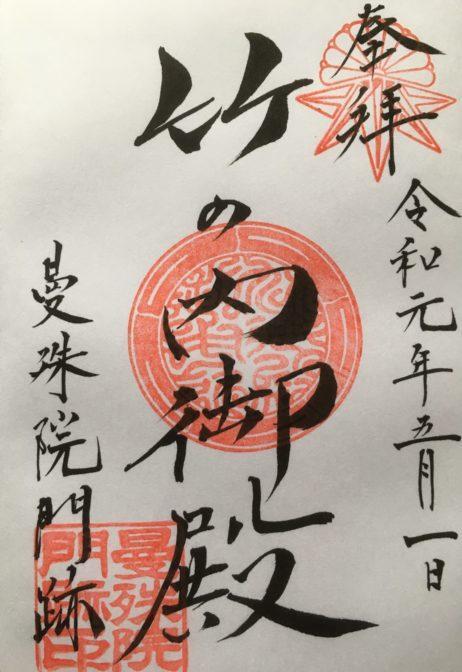 奉拝
令和元年五月一日
竹の内御殿
曼殊院門跡
曼殊院
門跡印